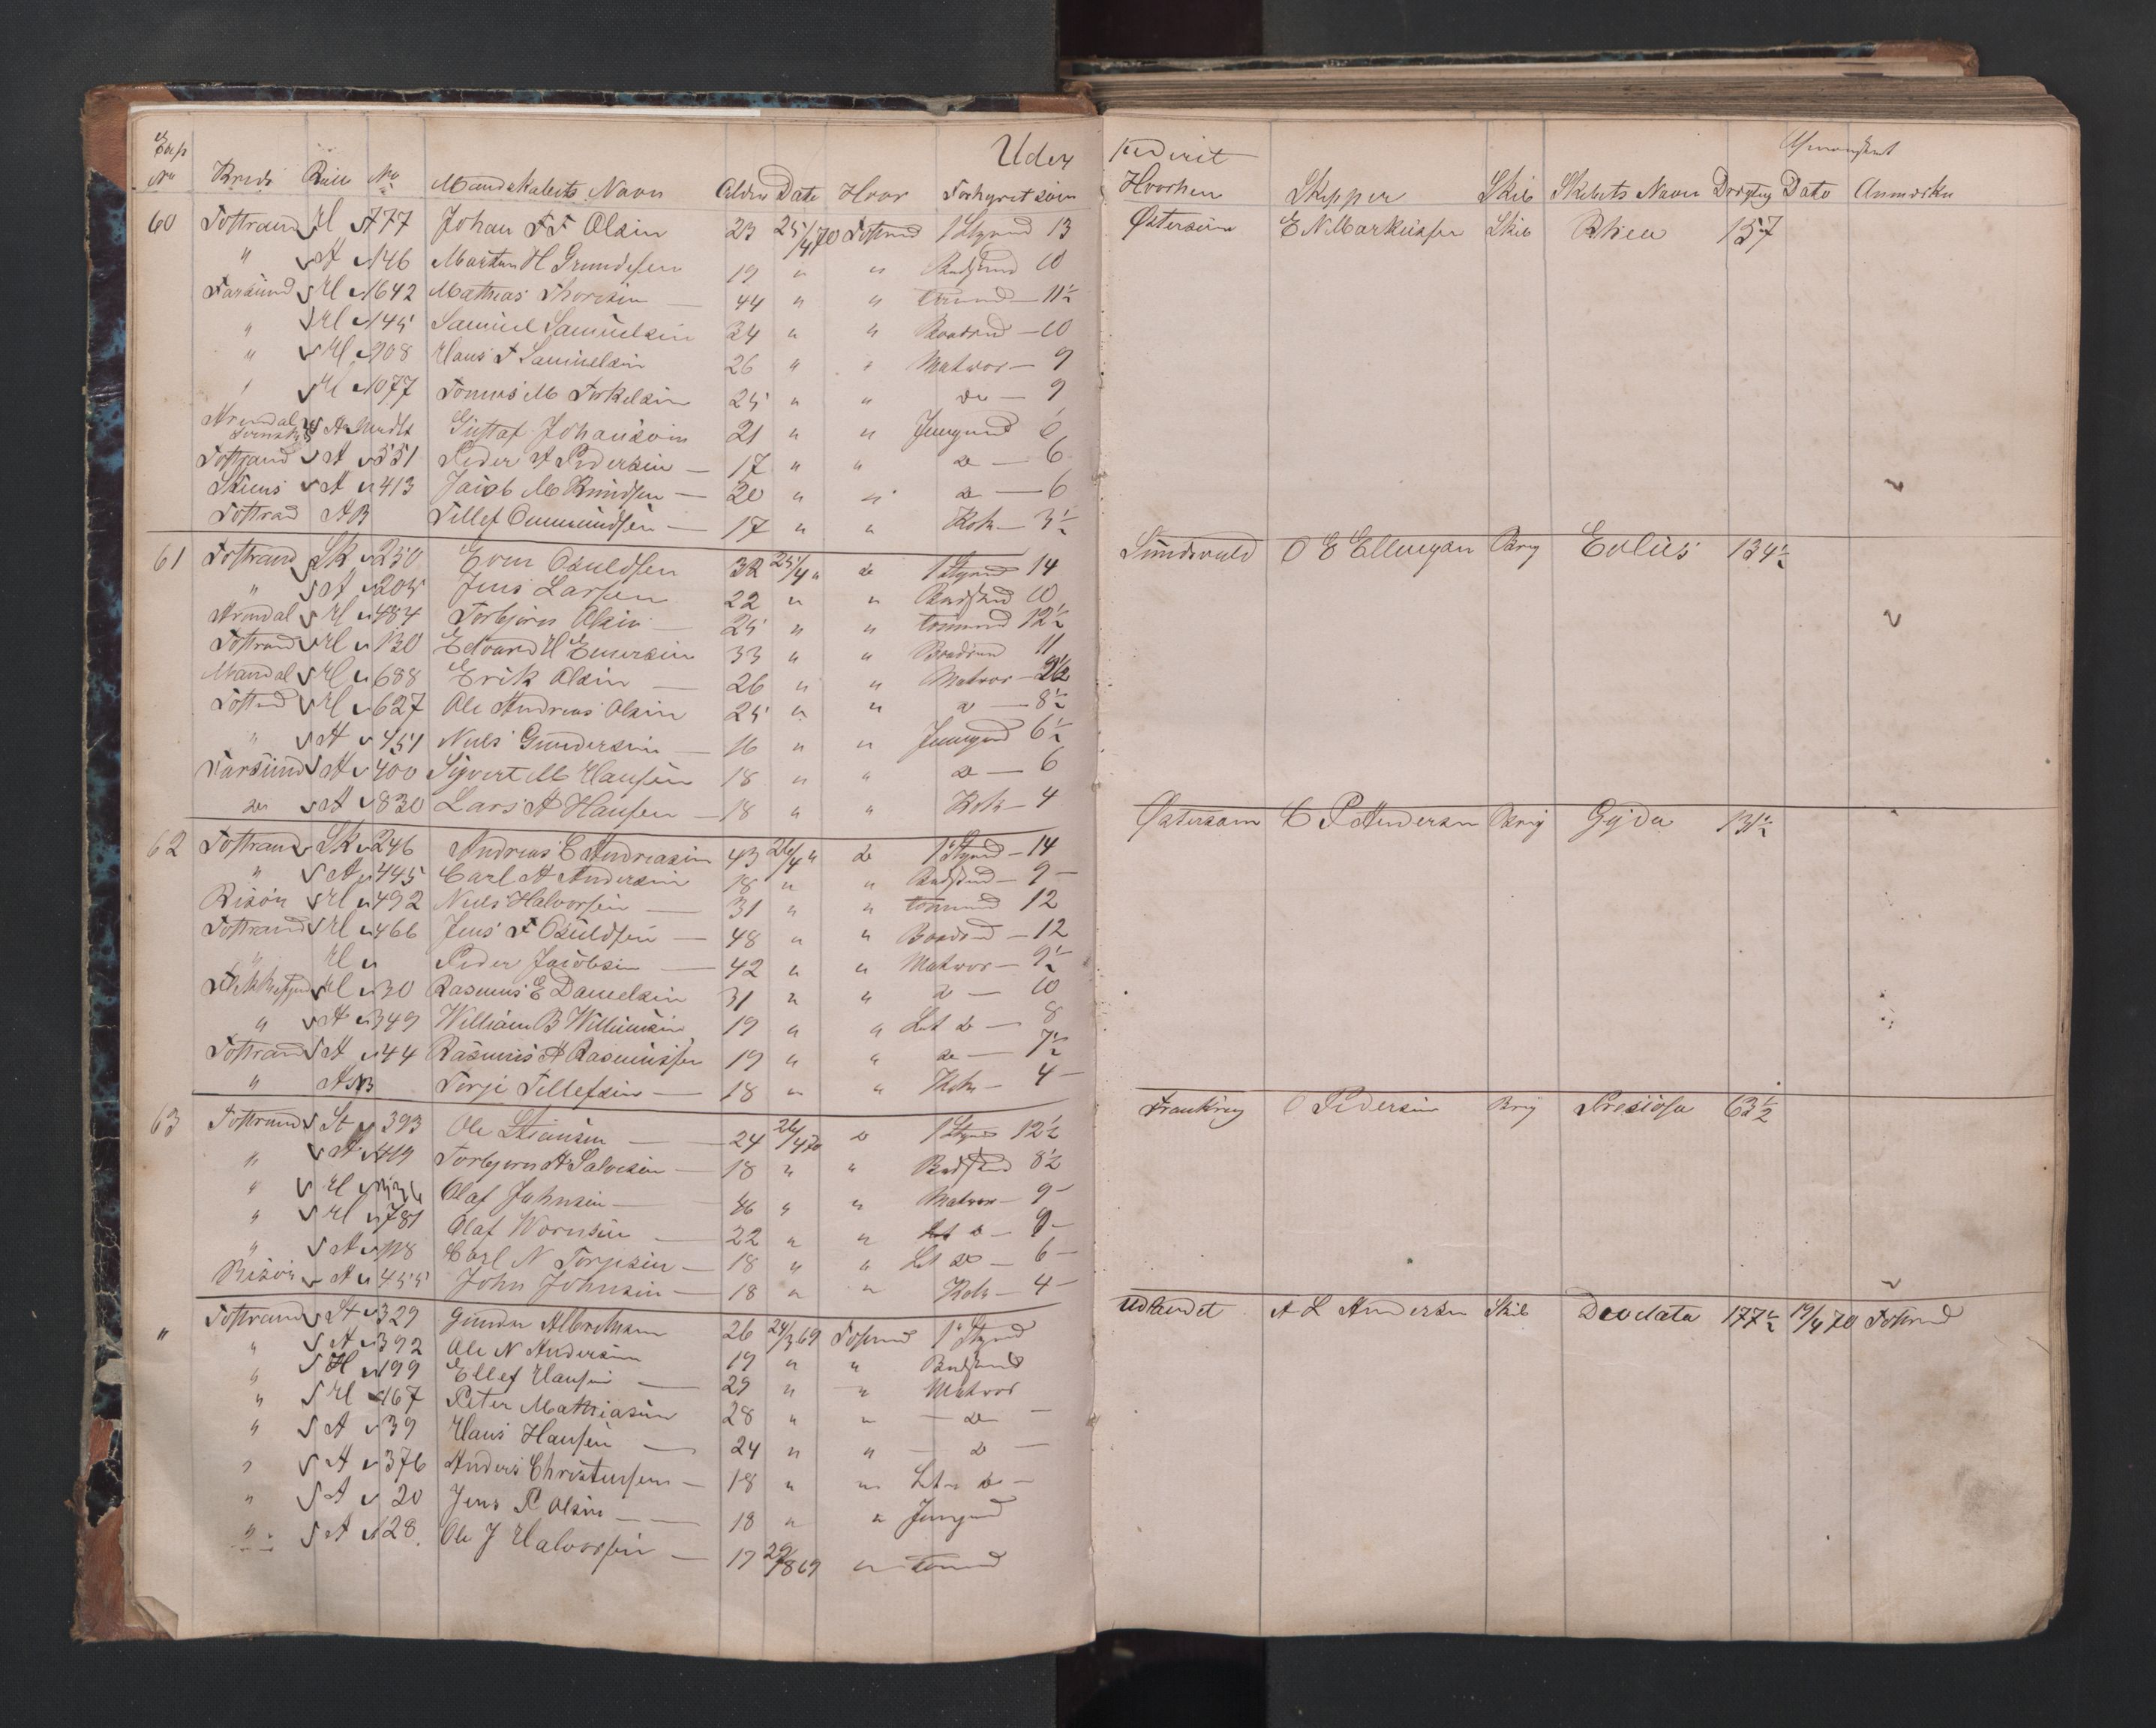 Udex
Exp No Kreds Rulle No Mandskabets Navn Alder Date Hvor Forhyret som
60 Tvstrand H 177 Johan F F Olsen 23 25/4 70 Tvstrand 1 Styrmd 13
" A 146 Morten H Gundesen 19 " " Badsmd 10
Farsund H 1642 Mathias Thorsen — 44 " " Tømmd — 11½
" H 145 Samuel Samuelsen 34 " " Baadsmd — 10
" H 108 Hans T Samuelsen 26 " " Matros — 9
" H 1077 Tønnes M Torkelsen 25 " " do — 9
Arendal Svensk A Gustaf Johanson 21 " " Jungmd 6
Tvstrand A 551 Peder A Pedersen — 17 " " do — 6
Skiens A 413 Jacob M Knudsen — 20 " " do — 6
Tvstrad AB Tellef Ommundsen — 17 " " Kok — 3½
61 Tvstrand SK 250 Even Osuldsen 32 25/4 " do 1 Styrmd 14
" A 205 Jens Larsen 22 " " Badsmd 10
Arendal H 484 Torbjørn Olsen — 25 " " Tømmd 12½
Tvstrand H 130 Edvard H Evensen 33 " " Baadsmd 11
Mandal H 688 Erik Olsen — 26 " " Matros —
Tvstrd H 627 Ole Andreas Olsen 25 " " do — 8½
" A 451 Niels Gundersen — 16 " " Jungmd 6½
Farsund A 400 Sigvert M Hansen 18 " " do — 6
do A 830 Lars A Hansen — 18 " " Kok — 4
62 Tvstrand SK 246 Andreas C Andreasen 43 26/4 " do 1 Styrmd — 14
" A 445 Carl A Andersen 18 " " Badsmd — 9 —
Risør H 492 Niels Halvorsen — 31 " " Tømmd 12
Tvstrand H 466 Jens F Osuldsen — 48 " " Baadsmd — 12
" H Peder Jacobsen — 42 " " Matros — 9½
Flekkefjord H 30 Rasmus E Danielsen 31 " " do — 10
" A 349 William B Willumsen 19 " " Let do — 8
Tvstrand A 44 Rasmus A Rasmussen 19 " " do — 7½
" AB Terje Tellefsen — 18 " " Kok — 4 —
63 Tvstrand St 393 Ole Stiansen — 24 26/4 70 do 1 Styrmd 12½
" A 419 Torbjørn A Salvesen — 18 " " Badsmd 8½
" H Olaf Johnsen — 46 " " Matros — 9 —
" H 781 Olaf Wornsen — 22 " " Let do —
" A 118 Carl N Terjesen — 18 " " Let do — 6 —
Risør A 455 John Johnsen — 18 " " Kok — 4 —
" Tvstrand St 329 Gunder Albretsen 26 24/3 69 Tvstrand 1 Styrmd
" A 392 Ole N Andersen 19 " " Badsmd
" H 199 Ellef Hansen — 29 " " Matros
" H 167 Peter Mathiasen 28 " " — do —
" A 39 Hans Hansen — 24 " " — do —
" A 376 Anders Christensen — 18 " " Let do —
" A 20 Jens P Olsen — 18 " " Jungmd
" A 128 Ole J Halvorsen — 17 29/8 69 " Tømmd
pederet
Hvorhen Skipper Skib Skibets Navn Drægtig Afmønstret Dato Anmærkn
Østersøen E N Markussen Skib Rhea 157
Sundsvald O E Ellingsen Brig Eolus 134½
Østersøen C P Andersen Brig Gyda 131½
Frankrig O Pedersen Brig Presiosa 63½
Udlandet A L Andersen Skib Deodata 177½ 19/4 70 Tvstrand